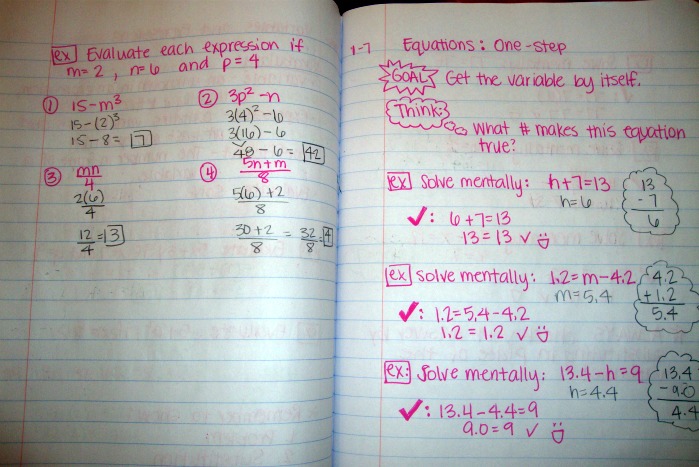 ex Evaluate each expression if
m=2, n=6 and p=4
① 15-m³
15-(2)³
15-8= 7
② 3p²-n
3(4)²-6
3(16)-6
48-6= 42
③ mn/4
2(6)/4
12/4 = 3
④ 5n+m/8
5(6)+2/8
30+2/8 = 32/8 = 4
1-7 Equations: One-step
GOAL Get the variable by itself.
Think:
What # makes this equation
true?
ex Solve mentally: h+7=13
h=6
✓: 6+7=13
13=13 ✓
13
-7
6
ex Solve mentally: 1.2=m-4.2
m=5.4
✓: 1.2=5.4-4.2
1.2=1.2 ✓
4.2
+1.2
5.4
ex: Solve mentally: 13.4-h=9
h=4.4
✓: 13.4-4.4=9
9.0=9 ✓
13.4
-9.0
4.4